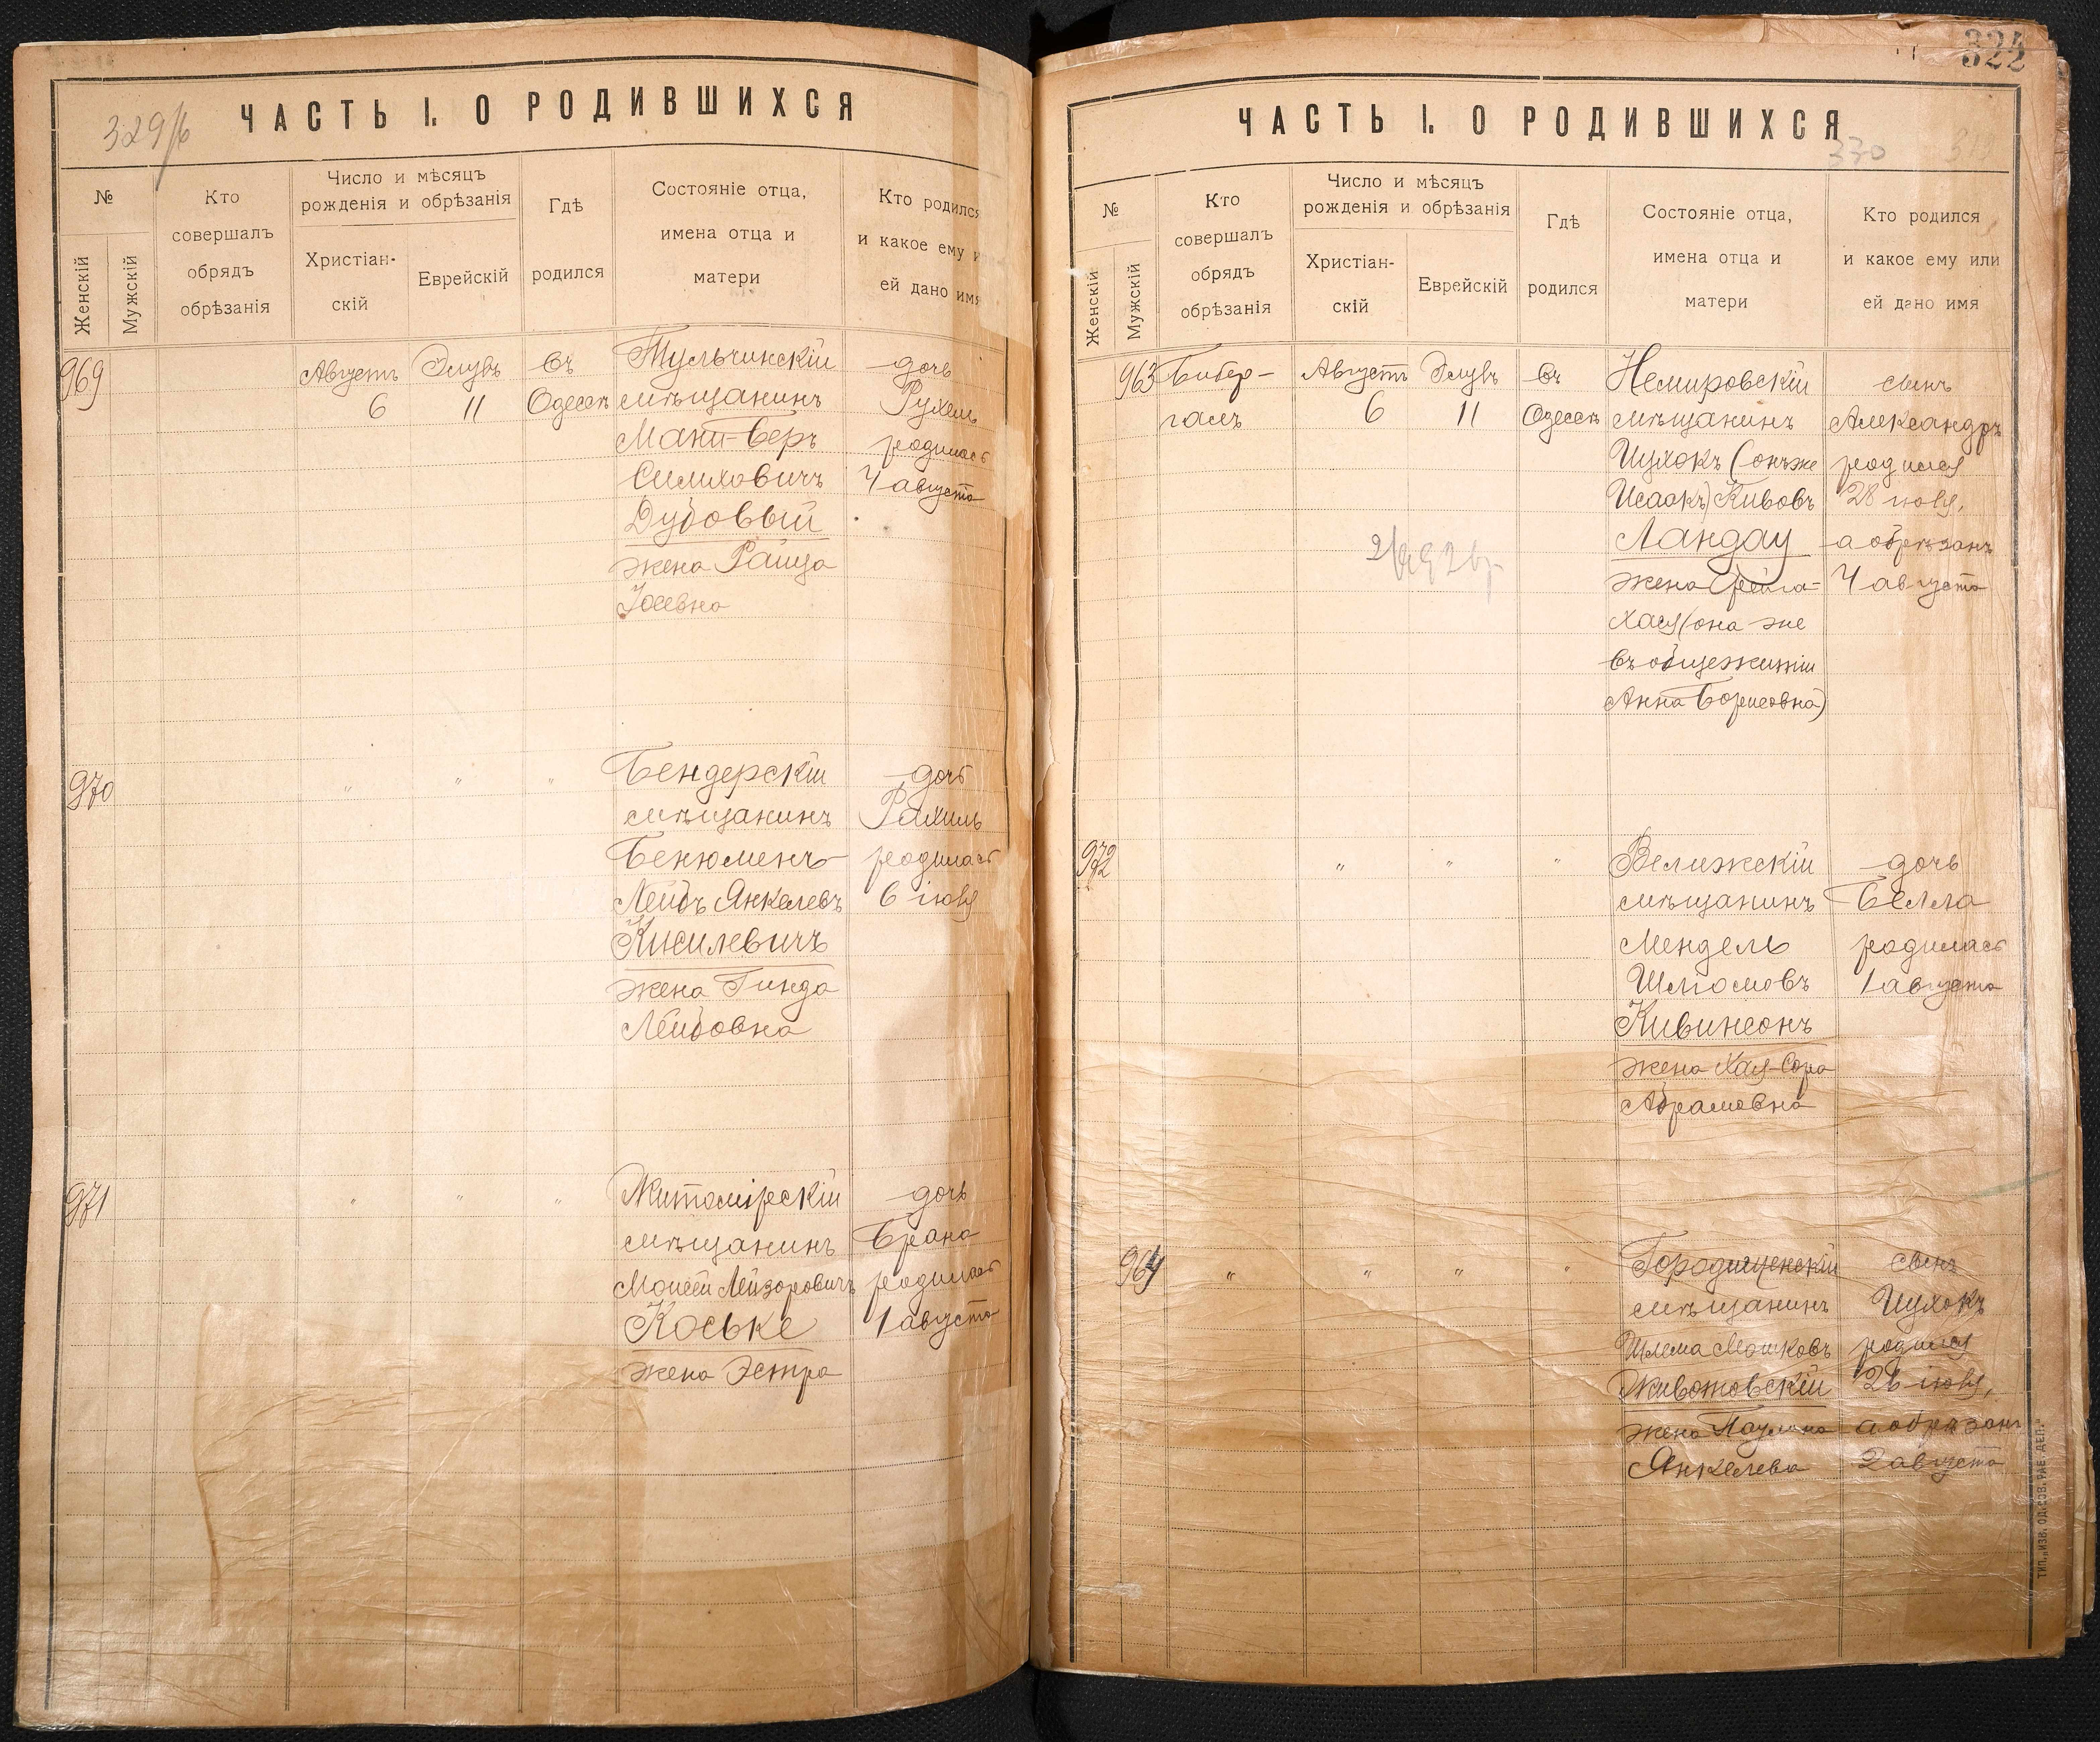 329/б
ЧАСТЬ I. О РОДИВШИХСЯ
№
Женскій
Мужскій
Кто
совершалъ
обрядъ
обрѣзанія
Число и мѣсяцъ
рожденія и обрѣзанія
Христіан-
скій
Еврейскій
Гдѣ
родился
Состояніе отца,
имена отца и
матери
Кто родился
и какое ему и
ей дано имя
969
Августъ
6
Элулъ
11
въ
Одессѣ
Тульчинскій
мѣщанинъ
Мани-Беръ
Симховичъ
Дубовый
жена Раица
Іосевна
дочь
Рухель
родилась
4 августа
970
" " "
Бендерскій
мѣщанинъ
Бенюменъ-
Лейбъ Янкелевъ
Кисилевичъ
жена Гинда
Лейбовна
дочь
Рахиль
родилась
6 іюля
971
" " "
Житомірскій
мѣщанинъ
Моисей Лейзоровичъ
Коське
жена Эстра
дочь
Брана
родилась
1 августа
322
ЧАСТЬ I. О РОДИВШИХСЯ
330
№
Женскій
Мужскій
Кто
совершалъ
обрядъ
обрѣзанія
Число и мѣсяцъ
рожденія и обрѣзанія
Христіан-
скій
Еврейскій
Гдѣ
родился
Состояніе отца,
имена отца и
матери
Кто родился
и какое ему или
ей дано имя
963
Бибер-
галъ
Августъ
6
Элулъ
11
въ
Одессѣ
Немировскій
мѣщанинъ
Ицхокъ (онъ же
Исаакъ) Кивовъ
Ландау
жена Фейга-
Хая (она же
въ общежитіи
Анна Борисовна)
сынъ
Александръ
родился
28 іюля,
а обрѣзанъ
4 августа
972
" " "
Велижскій
мѣщанинъ
Мендель
Шлiомовъ
Кивинсонъ
жена Хая-Сора
Абрамовна
дочь
Белла
родилась
1 августа
964
" " " "
Городищенскій
мѣщанинъ
Шлема Мошковъ
Животовскій
жена Паулина
Янкелева
сынъ
Ицхокъ
родился
26 іюля,
а обрѣзанъ
2 августа
ТИП. „ИЗВ. ОД. СОВ. РАБ. ДЕП."